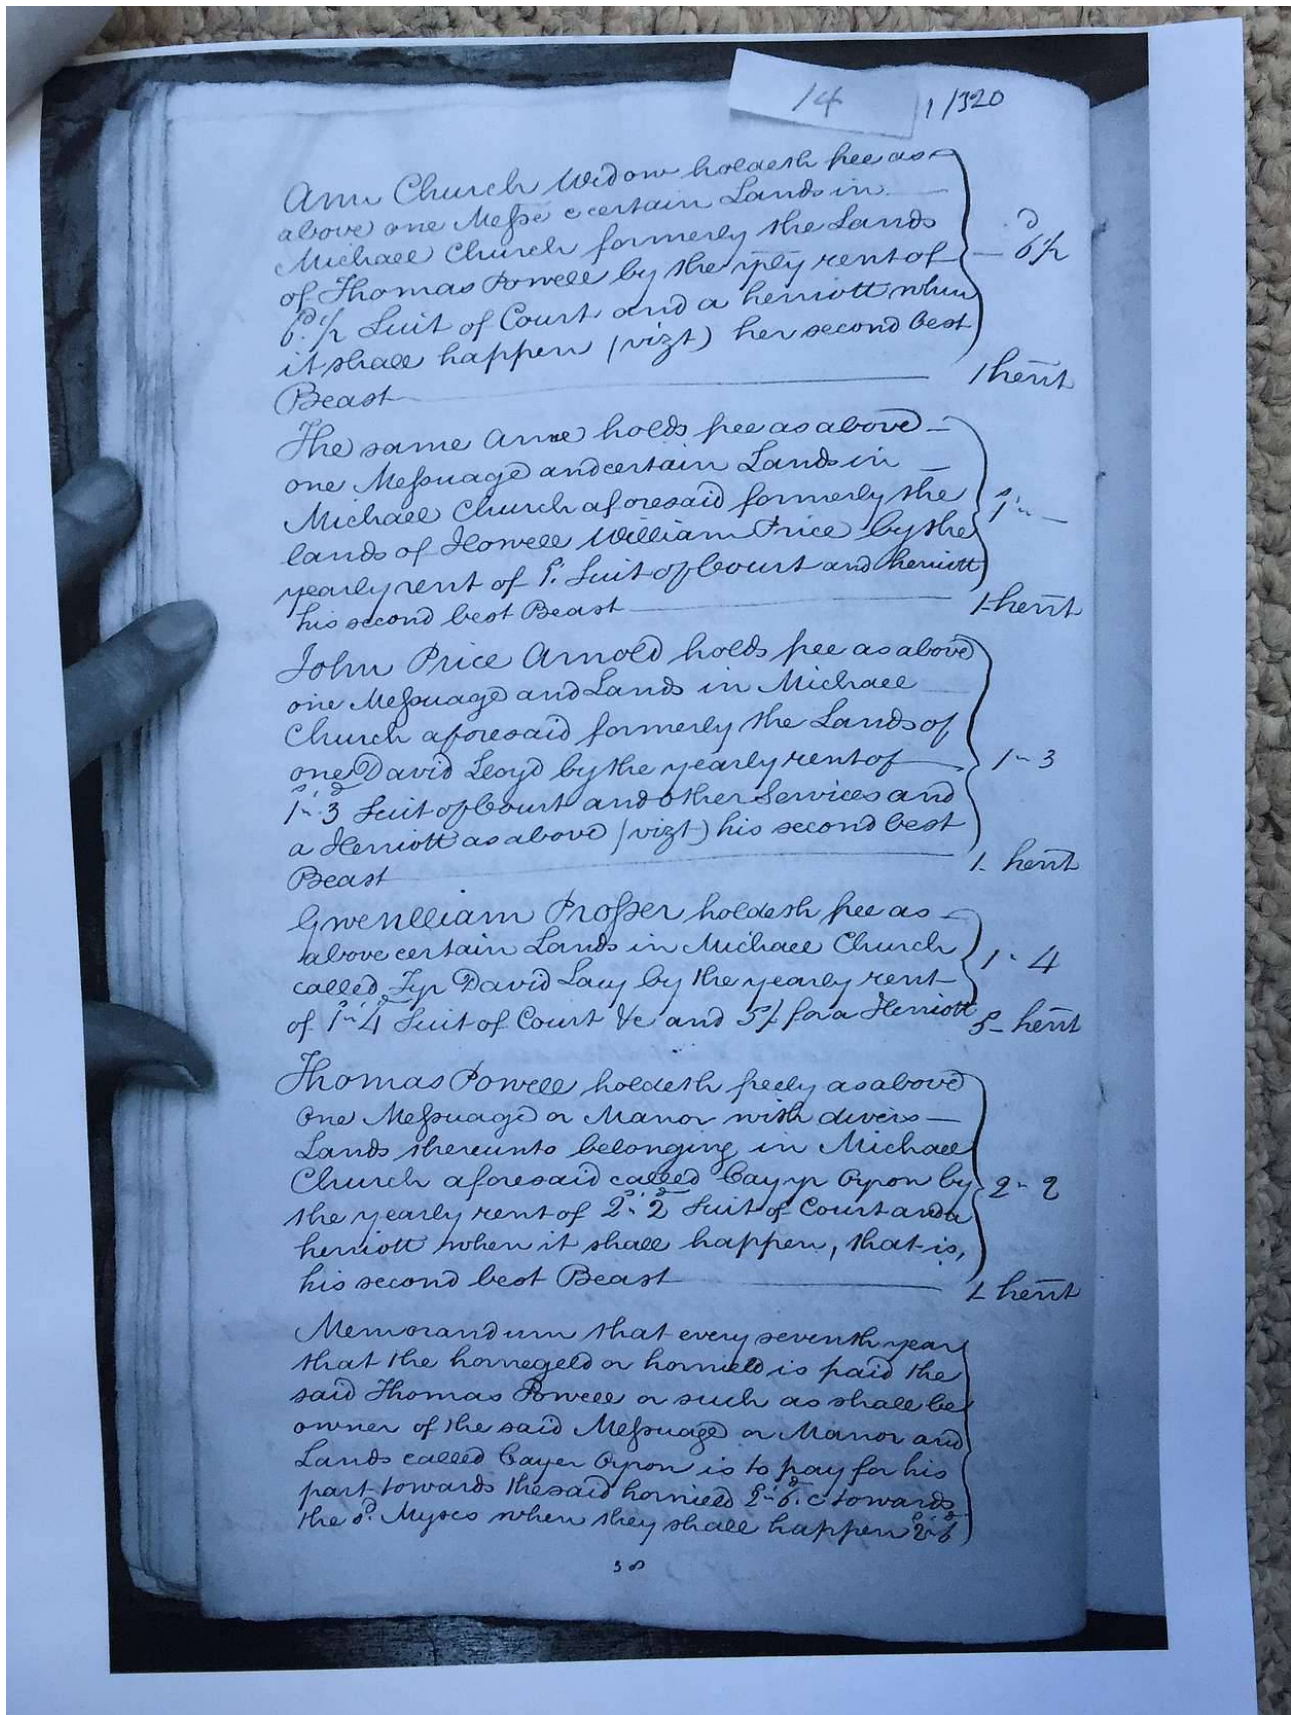 14
1/320
Ann Church Widow holdeth free as
above one Messe & certain Lands in
Michaell Church formerly the Lands
of Thomas Powell by the yrly rent of
6d. 1/2 Suit of Court and a herriott when
it shall happen (vizt) her second best
Beast
d
6 1/2
1 herit
The same Anne holds free as above
one Messuage and certain Lands in
Michaell Church aforesaid formerly the
lands of Howell William Price by the
yearly rent of 1s. Suit of Court and herriott
his second best Beast
1s " —
1 herit
John Price Arnold holds free as above
one Messuage and Lands in Michaell
Church aforesaid formerly the Lands of
one David Lloyd by the yearly rent of
1s " 3d Suit of Court and other Services and
a Herriott as above (vizt) his second best
Beast
1 " 3
1 herit
Gwenlliam Prosser holdeth free as
above certain Lands in Michaell Church
called Tyr David Lacy by the yearly rent
of 1s " 4d Suit of Court &c and 5/ for a Herriott
1 " 4
5 herit
Thomas Powell holdeth freely as above
One Messuage or Manor with divers
Lands thereunto belonging in Michaell
Church aforesaid called Cayyr Gyron by
the yearly rent of 2s " 2d Suit of Court and a
herriott when it shall happen, that is,
his second best Beast
2 " 2
1 herit
Memorandum that every seventh year
that the hornegeld or hornield is paid the
said Thomas Powell or such as shall be
owner of the said Messuage or Manor and
Lands called Cayer Gyron is to pay for his
part towards the said hornield 2s " 6d. & towards
the sd. Myses when they shall happen 2s " 6d
38